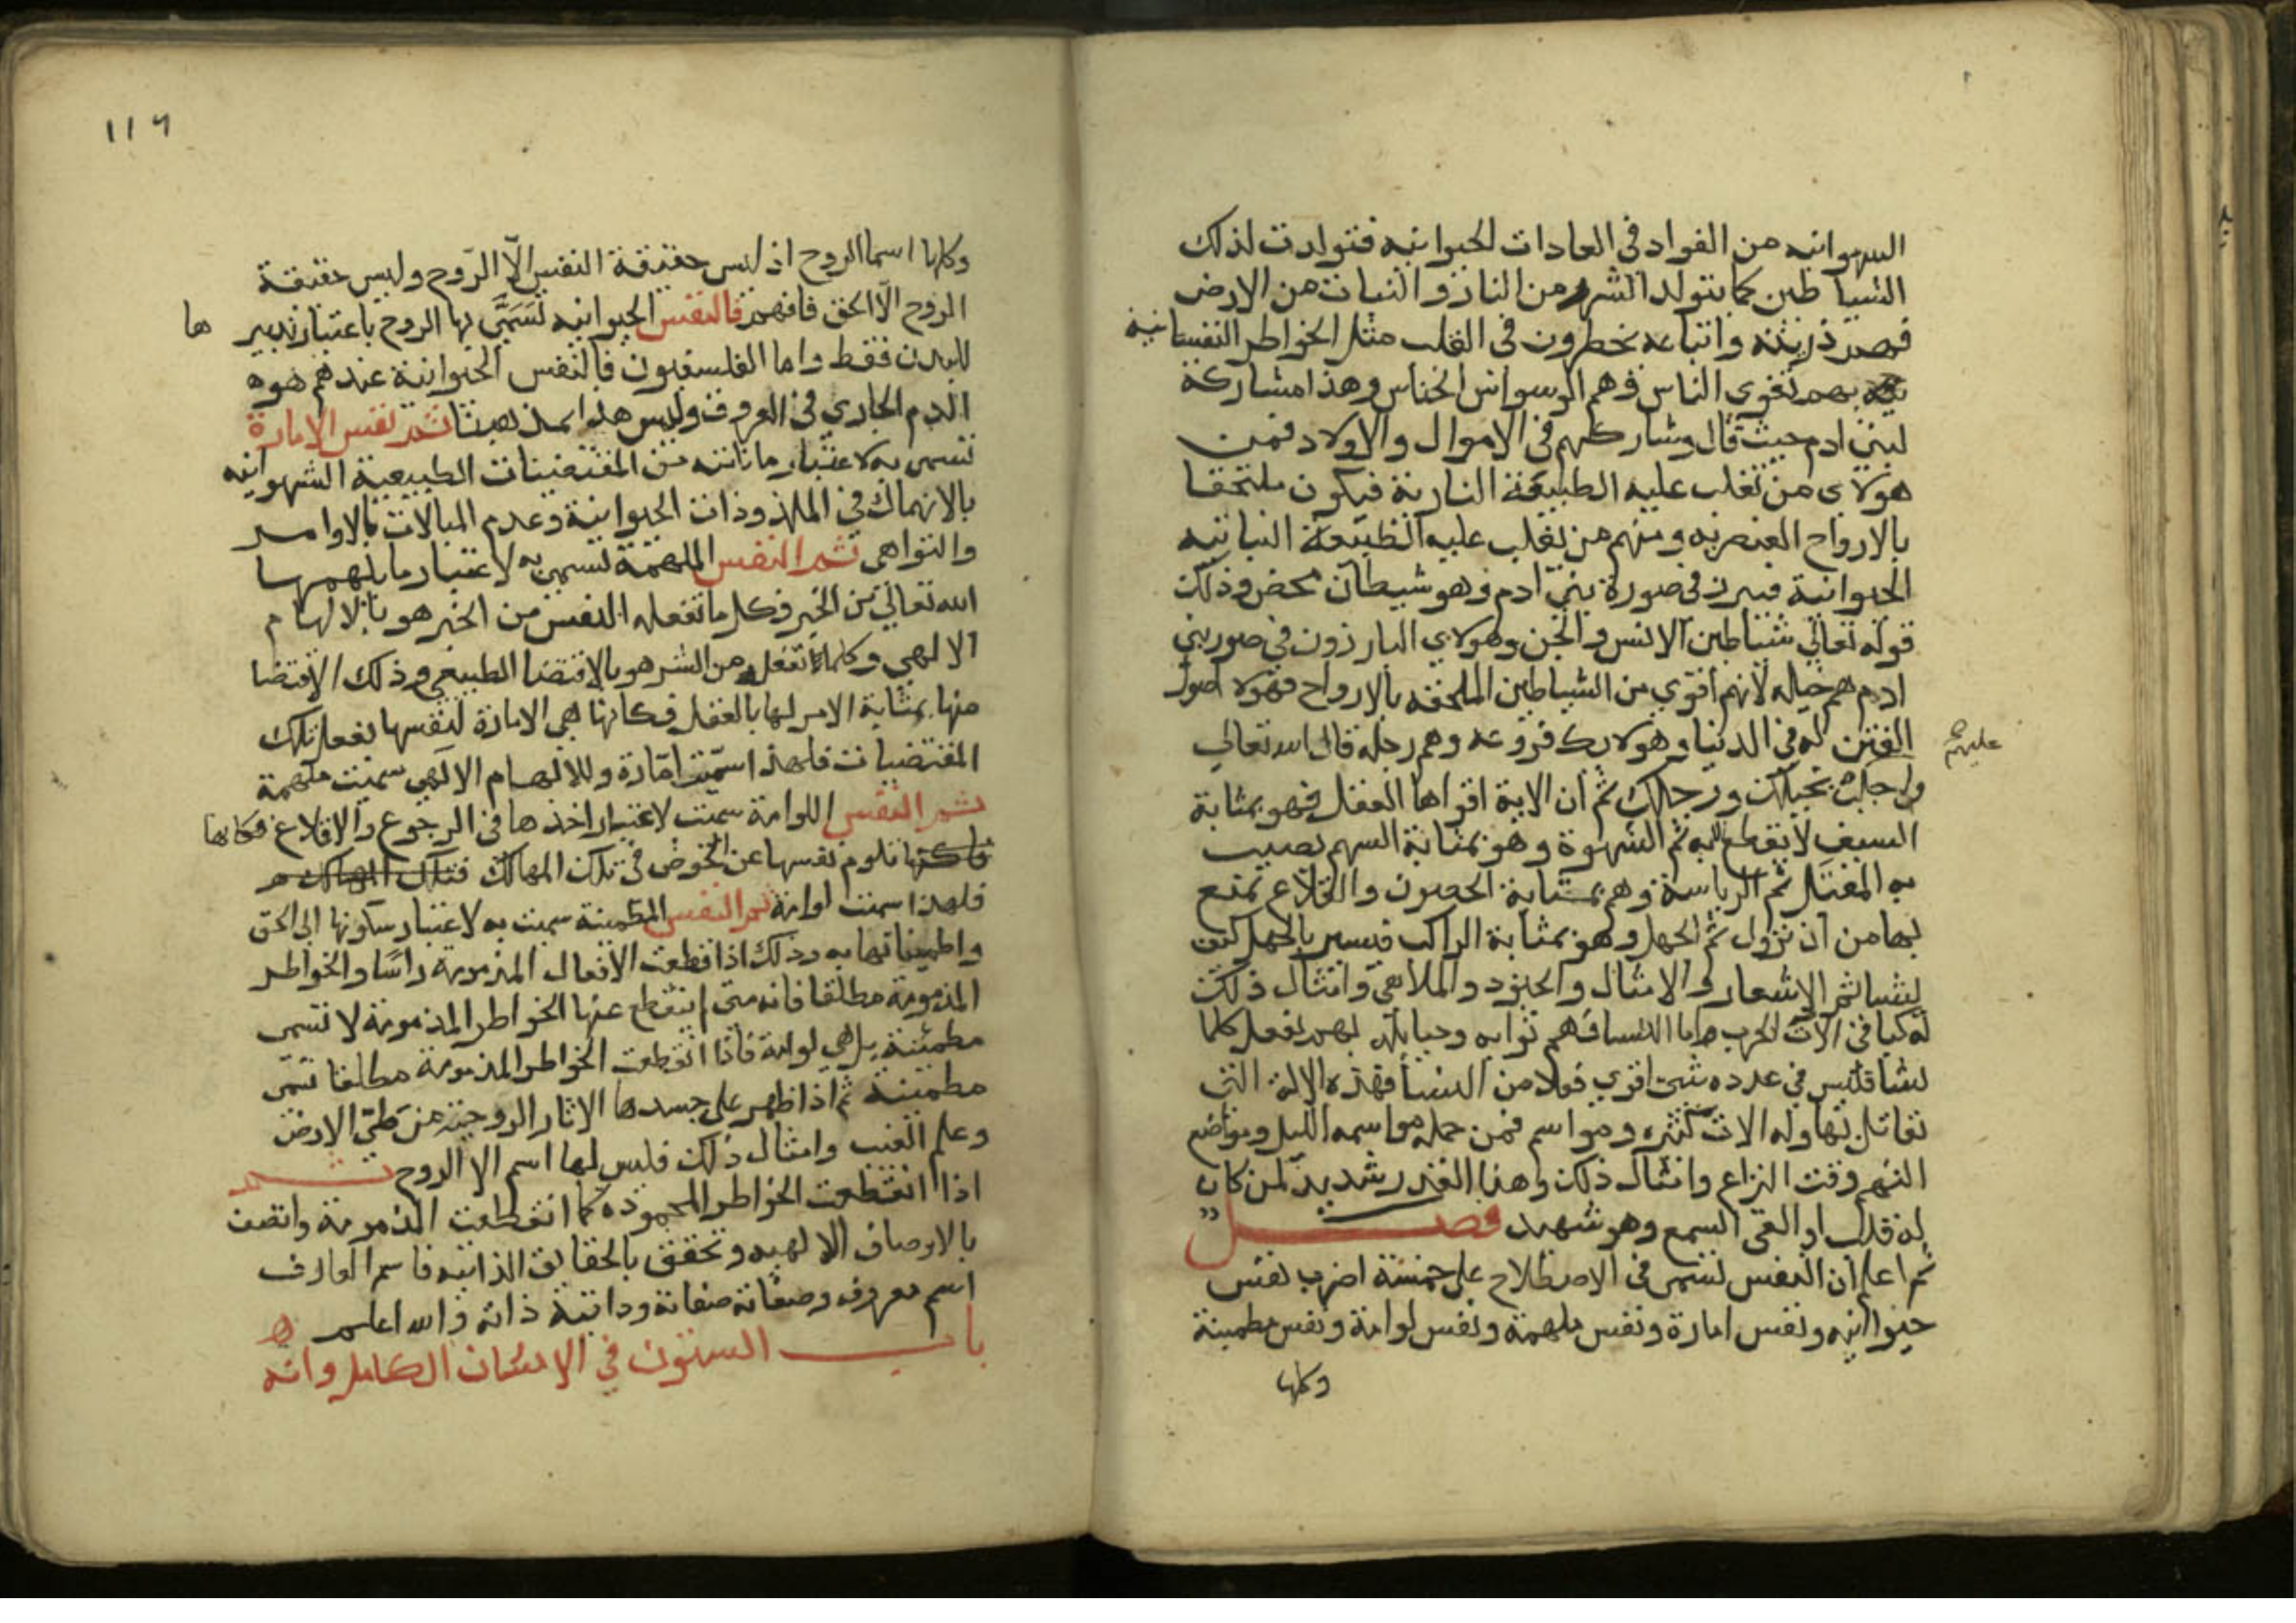 الشهوانيه من الفواد في العادات الحيوانيه فتولدت لذلك
الشياطين كما يتولد الشرر من النار والنبات من الارض
فهم ذريته واتباعه يخطرون في القلب مثل الخواطر النفسانيه
بهم تغوي الناس وهم الوسواس الخناس وهذا مشاركة
لبني ادم حيث قال وشاركهم في الاموال والاولاد فمن
هولاي من تغلب عليه الطبيعة النارية فيكون ملتحقا
بالارواح العنصريه ومنهم من تغلب عليه الطبيعة النباتيه
الحيوانية فيبرز في صورة بني ادم وهو شيطان محض وذلك
قوله تعالي شياطين الانس والجن وهولاي البارزون في صور بني
ادم هم خياله لانهم اقوي من الشياطين الملحقه بالارواح فهولا اصول
الفتن له في الدنيا وهولايك فروعه وهم رجله قال الله تعالي
عليهم
واجلب بخيلك ورجلك ثم ان الاية اقواها الغفل فهو بمثابة
السيف لا يقطع به ثم الشهوة وهو بمثابة السهم تصيب
به المقتل ثم الرياسة وهم بمثابة الحصون والقلاع تمنع
بها من ان تزول ثم الجهل وهو بمثابة الراكب فيسير بالجهل كيف
يشا ثم الاشعار والامثال والخنود والملاهي وامثال ذلك
له كباقي الات الحرب واما النسا فهم نوابه وحبايله بهم يفعل كلما
يشا فليس في عدده شي اقوي فعلا من النسا فهذه الالة التي
تقاتل بها وله الات كثيره ومواسم فمن جمله مواسمه الليل ومواضع
التهم وقت النزاع وامثال ذلك وهذا القدر شديد لمن كان
له قلب او القى السمع وهو شهيد فصل
ثم اعلم ان النفس تسمى في الاصطلاح على خمسة اضرب نفس
حيوانيه ونفس امارة ونفس ملهمة ونفس لوامة ونفس مطمينة
وكلها
١١٦
وكلها اسما الروح اذ ليس حقيقة النفس الّا الرّوح وليس حقيقة
الروح الّا الحق فافهم فالنفس الحيوانيه تسمّى بها الروح باعتبار تدبير ها
للبدن فقط واما الفلسفيون فالنفس الحيوانية عندهم هو
الدم الجاري في العروق وليس هذا بمذهبنا ثم نفس الامارة
تسمى به لاعتبار ما تاتيه من المقتضيات الطبيعية الشهوانيه
بالانهماك في الملذوذات الحيوانية وعدم المبالات بالاوامر
والنواهي ثم النفس الملهمة تسمى به لاعتبار ما يلهمها
الله تعالي من الخير فكل ما تفعله النفس من الخير هو بالالهام
الالهي وكلما تفعله من الشر هو بالاقتضا الطبيعي وذلك الاقتضا
منها بمثابة الامر لها بالفعل فكانها هي الامارة لنفسها بفعل تلك
المقتضيات فلهذا سميت امّارة وللالهام الالهي سميت ملهمة
ثم النفس اللوامة سميت لاعتبار اخذها في الرجوع والاقلاع فكانها
تلوم نفسها عن الخوض في تلك المهالك فتلك المهالك
فلهذا سميت لوامة ثم النفس المطمينة سميت به لاعتبار سكونها الى الحق
واطمينانها به وذلك اذا قطعت الافعال المذمومة راسًا والخواطر
المذمومة مطلقا فانه متى لم ينقطع عنها الخواطر المذمومة لا تسمى
مطمئنة بل هي لوامة فاذا انقطعت الخواطر المذمومة مطلقا تسمّى
مطمئنة ثم اذا ظهر على جسدها الاثار الروحية من طيّ الارض
وعلم الغيب وامثال ذلك فليس لها اسم الا الروح ثم
اذا انقطعت الخواطر المحموده كما انقطعت المذمومة واتصفت
بالاوصاف الالهيه وتحقق بالحقايق الذاتيه فاسم العارف
اسم معروفه وصفاته صفاته وذاتيه ذاته والله اعلم ه
باب الستون في الانسان الكامل وانه